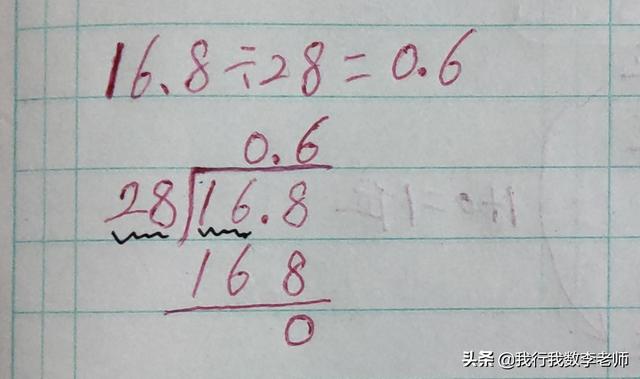 16.8÷28=0.6
0.6
28 16.8
168
0
头条 @我行我数李老师